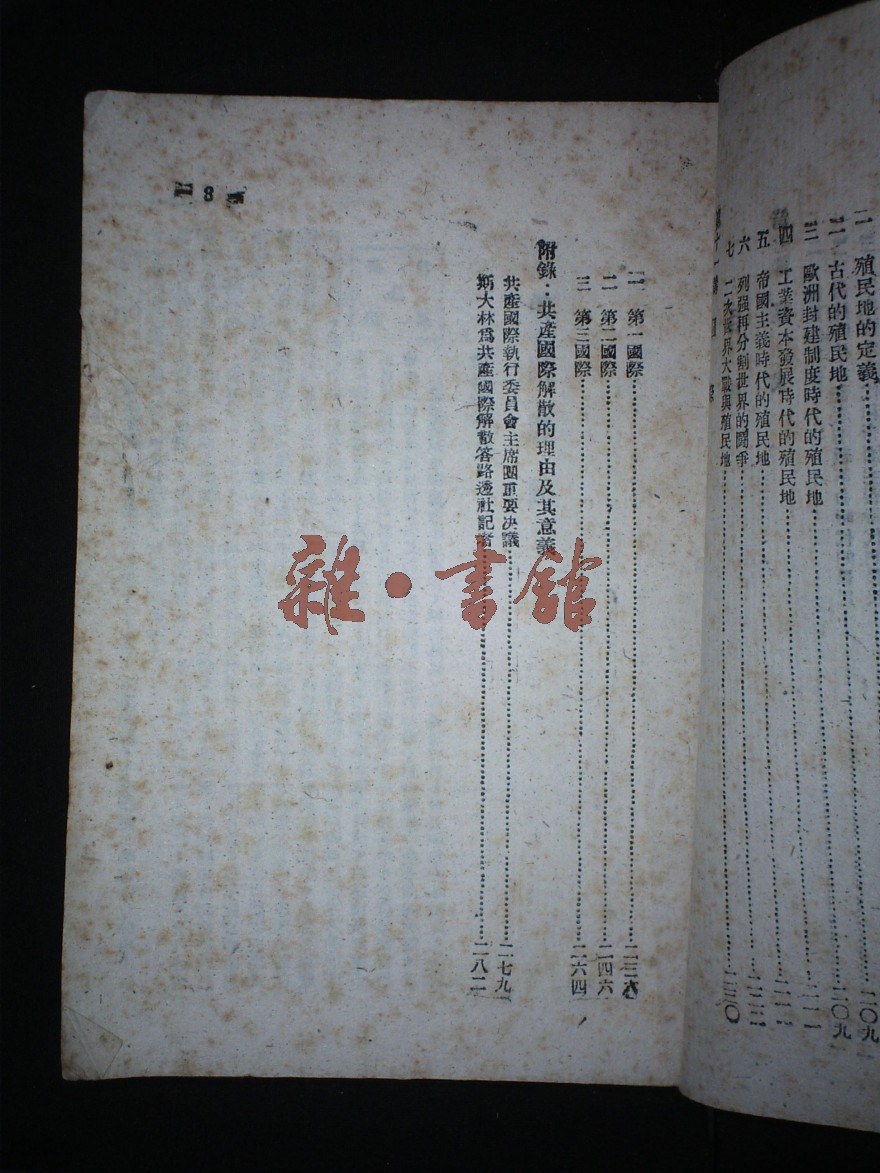 殖民地的定義……二〇九
二 古代的殖民地……二〇九
三 歐洲封建制度時代的殖民地……二一一
四 工業資本發展時代的殖民地……二一
五 帝國主義時代的殖民地
六 列強再分割世界的鬪爭
七 二次世界大戰與殖民地……二三〇
一 第一國際……二三六
二 第二國際……二四六
三 第三國際……二六四
附錄：共產國際解散的理由及其意義
共產國際執行委員會主席團重要决議……二七九
斯大林爲共產國際解散答路透社記者……二八二
8
雜·書館